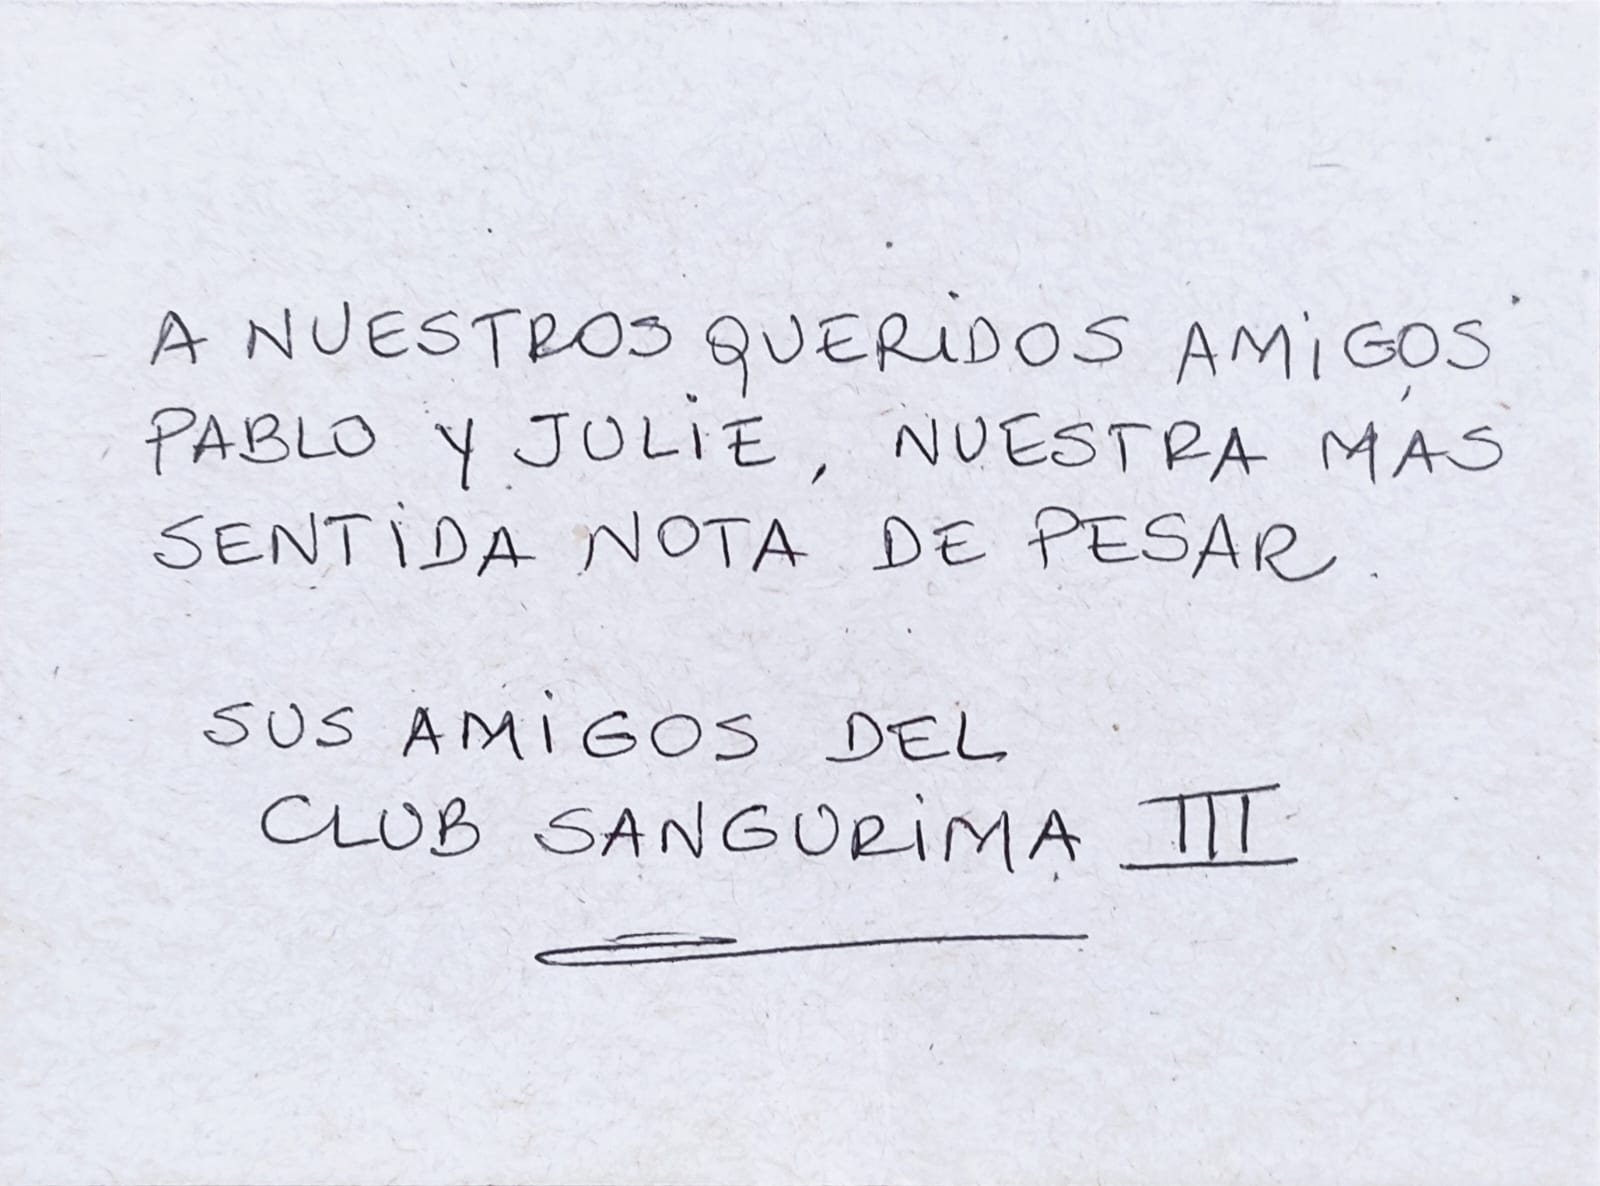 A NUESTROS QUERiDOS AMiGOS
PABLO Y JULiE, NUESTRA MAS
SENTiDA NOTA DE PESAR.
SUS AMiGOS DEL
CLUB SANGURiMA III